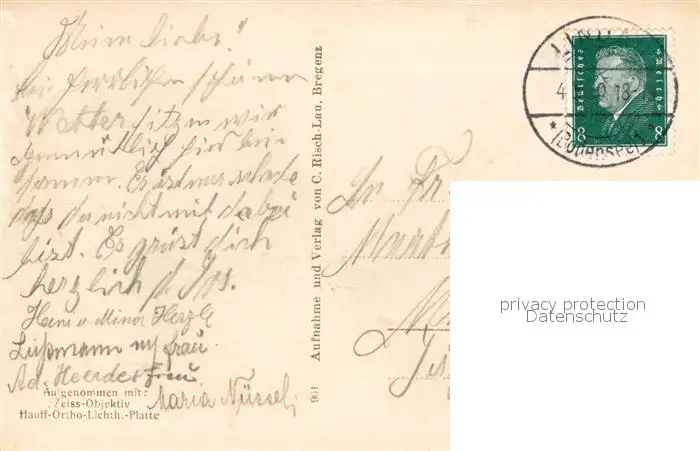 Meine Liebe!
bei herrlichem schönen
Wetter sitzen wir
gemütlich hier bei
samm. Es ist nur schade
daß du nicht mit dabei
bist. Es grüst dich
herzlich
Heini u Mina Herzle
Lußmann u frau.
Ad. Heerde & Frau
Maria Nüssel
Aufgenommen mit:
Zeiss-Objektiv
Hauff-Ortho-Lichth.-Platte
961 Aufnahme und Verlag von C. Risch-Lau, Bregenz
Deutsches Reich
8 8
(Bodensee)
An Fr
privacy protection
Datenschutz